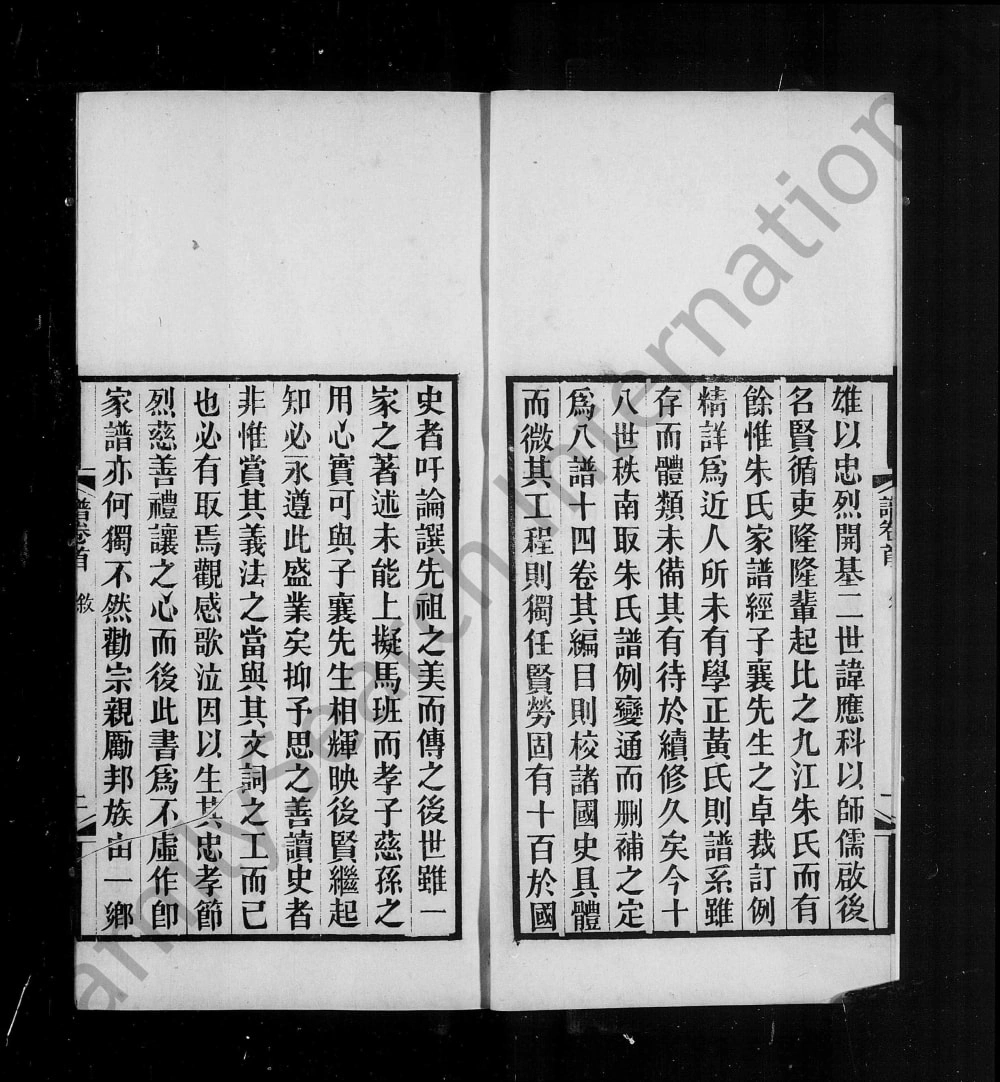 雄以忠烈開基二世諱應科以師儒啟後
名賢循吏隆隆輩起比之九江朱氏而有
餘惟朱氏家譜經子襄先生之卓裁訂例
精詳爲近人所未有學正黃氏則譜系雖
存而體類未備其有待於續修久矣今十
八世秩南取朱氏譜例變通而删補之定
爲八譜十四卷其編目則校諸國史具體
而微其工程則獨任賢勞固有十百於國
史者吁論譔先祖之美而傳之後世雖一
家之著述未能上擬馬班而孝子慈孫之
用心實可與子襄先生相輝映後賢繼起
知必永遵此盛業矣抑予思之善讀史者
非惟賞其義法之當與其文詞之工而已
也必有取焉觀感歌泣因以生其忠孝節
烈慈善禮讓之心而後此書爲不虛作卽
家譜亦何獨不然勸宗親勵邦族由一鄉
譜卷首 敘 二
amilySearch International